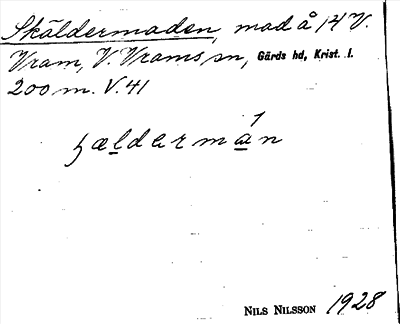 Skäldermaden, mad å 14 V.
Vram, V. Vrams sn, Gärds hd, Krist. l.
200 m. V. 41
ʄælderma̲n
NILS NILSSON 1928